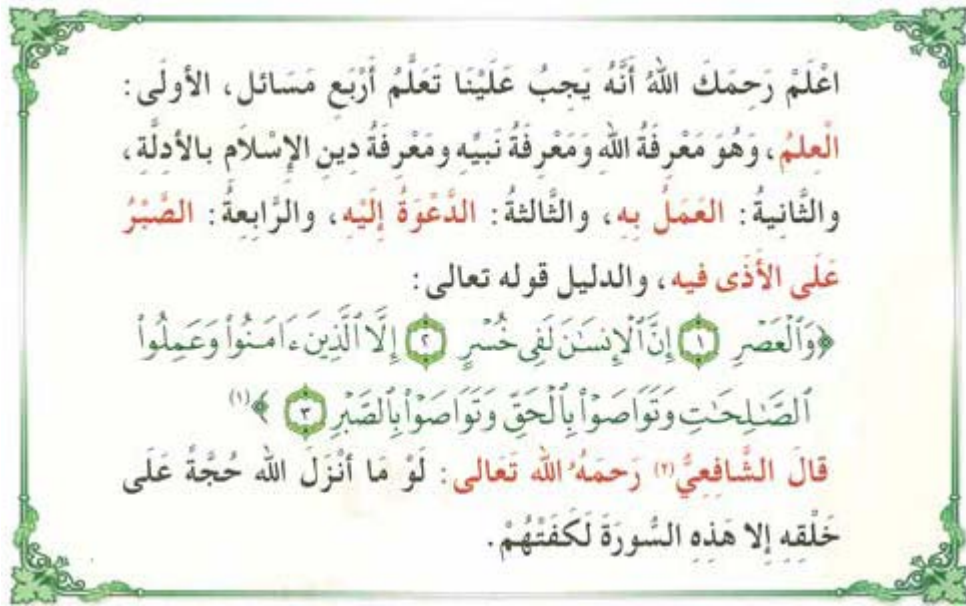 اعْلَمْ رَحِمَكَ اللهُ أَنَّهُ يَجِبُ عَلَيْنَا تَعَلُّمُ أَرْبَعِ مَسَائل، الأولَى:
الْعِلمُ، وَهُوَ مَعْرِفَةُ اللهِ وَمَعْرِفَةُ نَبيِّه ومَعْرِفَةُ دِينِ الإِسْلَام بالأدلَّةِ،
والثَّانيةُ: العَمَلُ بِه، والثَّالثةُ: الدَّعْوَةُ إِلَيْه، والرَّابعةُ: الصَّبْرُ
عَلَى الأَذَى فيه، والدليل قوله تعالى:
﴿وَٱلْعَصْرِ ١ إِنَّ ٱلْإِنسَٰنَ لَفِى خُسْرٍ ٢ إِلَّا ٱلَّذِينَ ءَامَنُوا۟ وَعَمِلُوا۟
ٱلصَّٰلِحَٰتِ وَتَوَاصَوْا۟ بِٱلْحَقِّ وَتَوَاصَوْا۟ بِٱلصَّبْرِ ٣﴾(١)
قالَ الشَّافِعِيُّ(٢) رَحمَهُ الله تَعَالى: لَوْ مَا أنْزَلَ الله حُجَّةً عَلَى
خَلْقِه إلا هَذِهِ السُّورَةَ لَكَفَتْهُمْ.